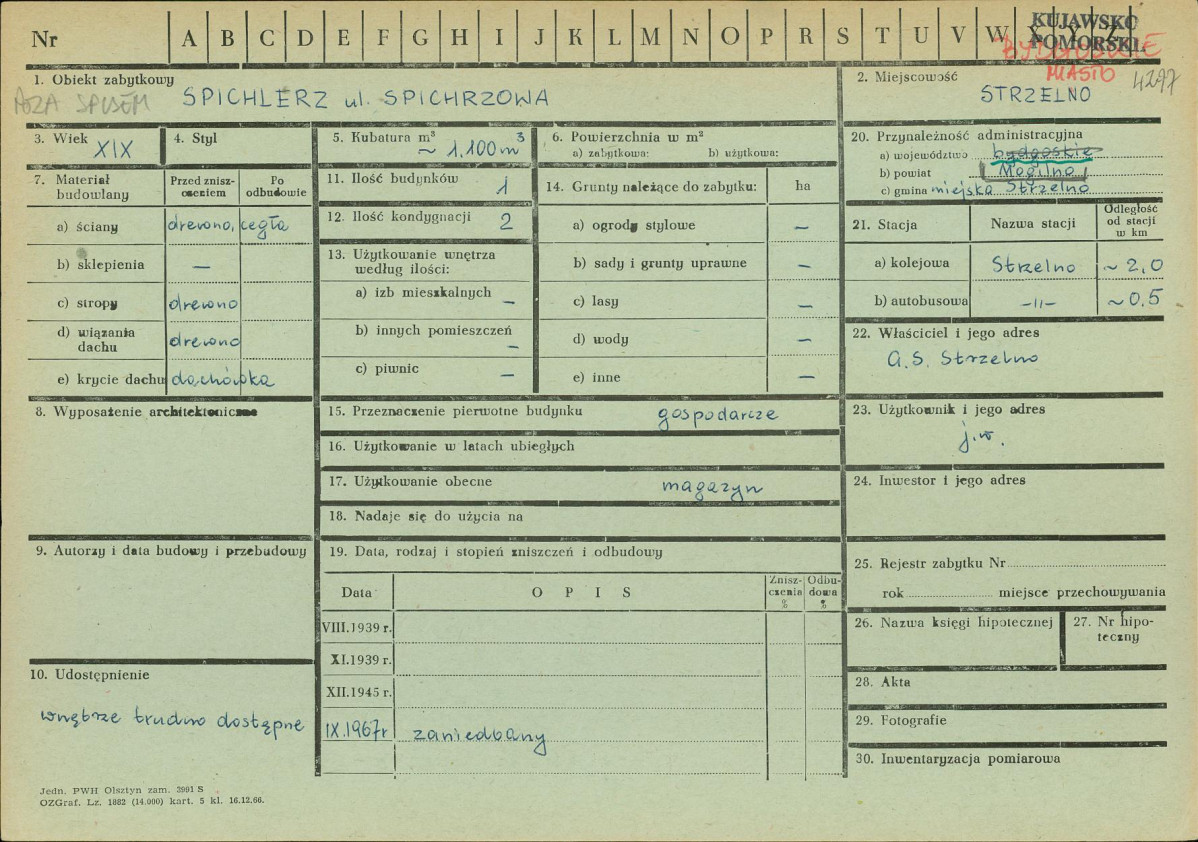 Nr A B C D E F G H I J K L M N O P R S T U V W X Y Z
KUJAWSKO
POMORSKIE
MIASTO
4297
1. Obiekt zabytkowy
SPICHLERZ ul. SPICHRZOWA
POZA SPISEM
2. Miejscowość
STRZELNO
3. Wiek
XIX
4. Styl
5. Kubatura m³
~ 1.100 m³
6. Powierzchnia w m²
a) zabytkowa: b) użytkowa:
7. Materiał budowlany
Przed zniszczeniem
Po odbudowie
a) ściany drewno, cegła
b) sklepienia —
c) stropy drewno
d) wiązania dachu drewno
e) krycie dachu dachówka
8. Wyposażenie architektoniczne
9. Autorzy i data budowy i przebudowy
10. Udostępnienie
wnętrze trudno dostępne
11. Ilość budynków 1
12. Ilość kondygnacji 2
13. Użytkowanie wnętrza
według ilości:
a) izb mieszkalnych —
b) innych pomieszczeń —
c) piwnic —
14. Grunty należące do zabytku: ha
a) ogrody stylowe —
b) sady i grunty uprawne —
c) lasy —
d) wody —
e) inne —
15. Przeznaczenie pierwotne budynku gospodarcze
16. Użytkowanie w latach ubiegłych
17. Użytkowanie obecne magazyn
18. Nadaje się do użycia na
19. Data, rodzaj i stopień zniszczeń i odbudowy
Data O P I S Zniszczenia % Odbudowa %
VIII.1939 r.
XI.1939 r.
XII.1945 r.
IX.1967r zaniedbany
20. Przynależność administracyjna
a) województwo bydgoskie
b) powiat Mogilno
c) gmina miejska Strzelno
21. Stacja Nazwa stacji Odległość od stacji w km
a) kolejowa Strzelno ~ 2,0
b) autobusowa -„- ~ 0,5
22. Właściciel i jego adres
G.S. Strzelno
23. Użytkownik i jego adres
j.w.
24. Inwestor i jego adres
25. Rejestr zabytku Nr
rok miejsce przechowywania
26. Nazwa księgi hipotecznej
27. Nr hipoteczny
28. Akta
29. Fotografie
30. Inwentaryzacja pomiarowa
Jedn. PWH Olsztyn zam. 3991 S
OZGraf. Lz. 1882 (14.000) kart. 5 kl. 16.12.66.